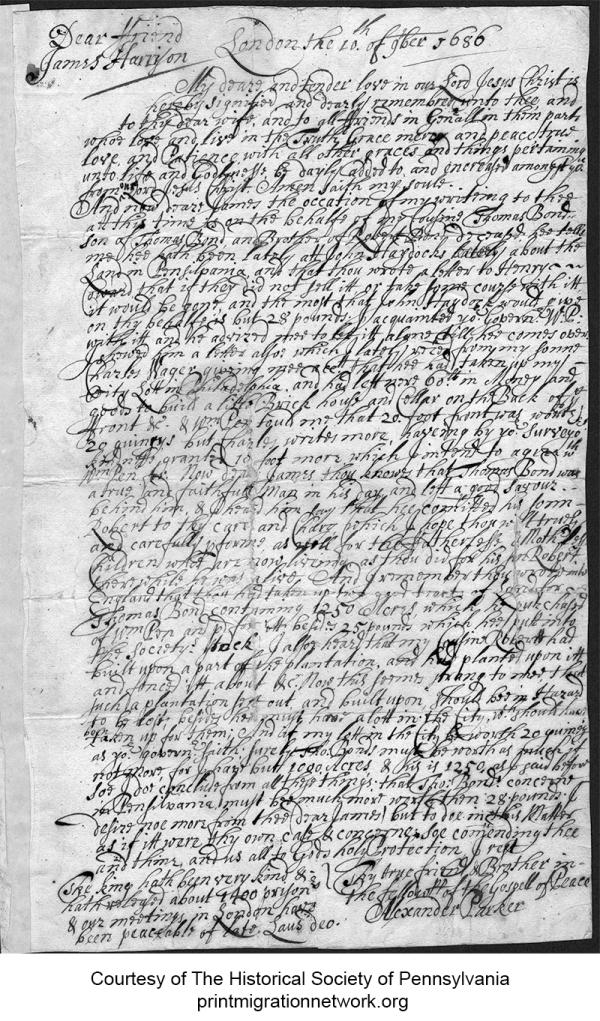 Dear Friend
James Harrison
London the 10th of 9ber 1686
My deare and tender love in our Lord Jesus Christ is
hereby signified and dearly remembred unto thee, and
to thy dear wife, and to all friends in Genall in them parts
whoe love and live in the Truth, Grace mercy and peace true
love, and Patience with all other graces and things pertaining
unto life and Godlinesse be dayly added to and increased amongst you
from our Lord Jesus Christ Amen saith my soule.
And now deare James the occation of my writing to thee
at this time is on the behalfe of my Cousine Thomas Bond
son of Thomas Bond, and Brother of Robert Bond deceased, hee tells
me hee hath been lately att John Haydocks about the
Land in Pensilvania, and that thou wrote a letter to Henry
that if they did not sell itt or take some course with itt
it would be gone, and the most that John Haydock would give
on thy behalfe is but 28 pounds. I acquainted yor Govern: W: P:
with itt and he advized mee to lett itt alone till hee comes over
I shewed him a letter alsoe which I lately reced from my sonne
Charles Wager giving mee acct that hee had taken up my
Citty Lott in Philadelphia. and had left were 60lb in Money and
goods to build a little Brick house and Cellar on the Back of ye
Front &c. & Wm Pen tould me that 20. foot front was worth
20 guineys but Charles writes more, haveing by yor Surveyor
granted 10 foot more which I intend to agree wth
Wm Pen for. Now dear James thou knowes that Thomas Bond was
a true and faithfull Man in his day and left a good savour
behind him, & I heard him say that hee comitted his sonn
Robert to thy care and charg which I hope thou
and carefully performe as well for the Fatherlesse & Mothlesse
Children which are now liveing as thou did for his son Robert
there while he was alive, And I remember thou wrote into
England that thou had taken up two good tracts of land for
Thomas Bond containing 1250 Acres which hee purchased
of Wm Pen and pd for itt besides 25 pounds which hee putt into
the Society Stock. I alsoe heard that my Cousin Robertt had
built upon a part of the plantation, and had planted upon itt
and fenced itt about &c. Now this seemes strang to mee that
such a plantation sett out, and built upon, should bee in Hazard
to be lost; besides hee must have a lott in the City, wch should have
been Taken up for them; And if my lott in the City be worth 20 guineys
as yor govern: saith. surely Tho: Bonds must be worth as much if
not more, for I have butt 1000 Acres, & his is 1250, as I said before
soe I doe conclude from all these things, that Tho: Bonds concerne
in Pensilvania must be much more worth then 28: pounds. I
desire noe more from thee dear James, but to doe in this Matter
as if itt were thy own case & concerne, soe comending thee
and thine, and us all to Gods holy Protection I rest
Thy true friend & Brother in
the fellowsp of the Gospell of Peace
Alexander Parker
The king hath been very kind &
hath released about 1400 prisonrs
& our meetings in London have
been peaceable of late. Laus deo.
Courtesy of The Historical Society of Pennsylvania
printmigrationnetwork.org